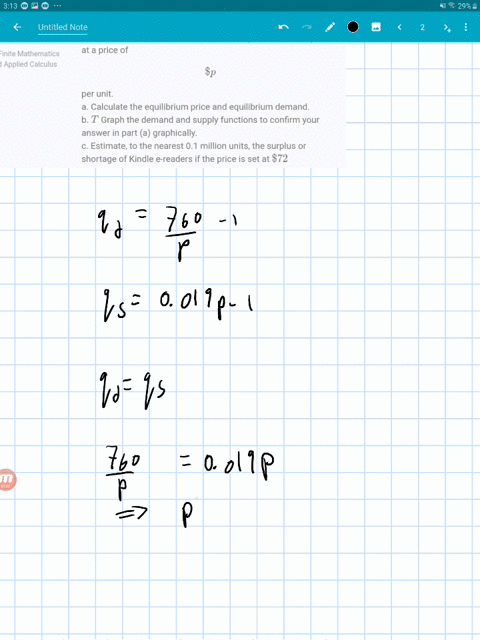 3:13 29%
Untitled Note 2
Finite Mathematics
d Applied Calculus
at a price of
$p
per unit.
a. Calculate the equilibrium price and equilibrium demand.
b. T Graph the demand and supply functions to confirm your
answer in part (a) graphically.
c. Estimate, to the nearest 0.1 million units, the surplus or
shortage of Kindle e-readers if the price is set at $72
q_d = 760/p - 1
q_s = 0.019p - 1
q_d = q_s
760/p = 0.019p
⇒ p